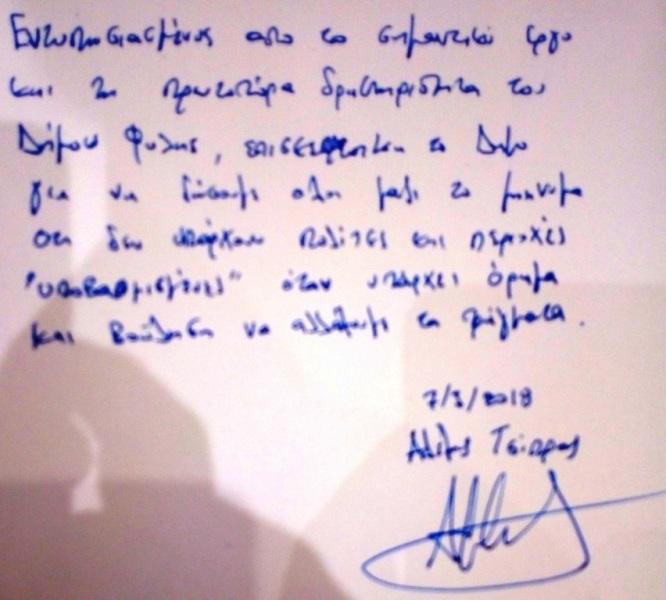 Εντυπωσιασμένος από το σημαντικό έργο
και τη πρωτοπόρα δραστηριότητα του
Δήμου Φυλής, το Δήμο
για να δώσουμε όλοι μαζί το μήνυμα
ότι δεν υπάρχουν πολίτες και περιοχές
"υποβαθμισμένες" όταν υπάρχει όραμα
και βούληση να αλλάξουμε τα πράγματα.
7/3/2018
Αλέξης Τσίπρας